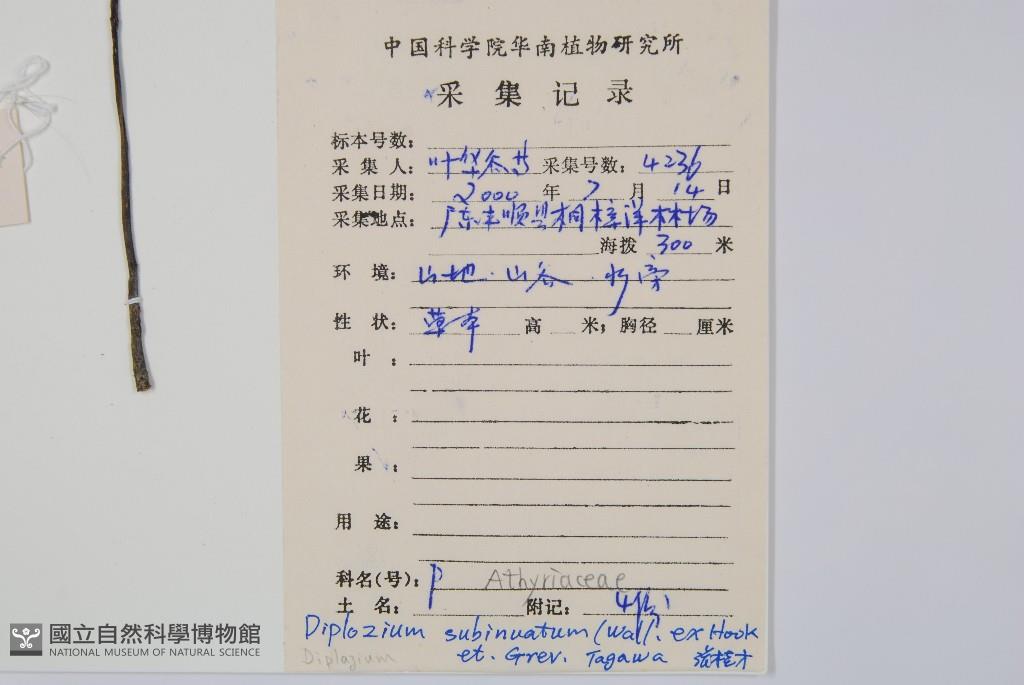 中国科学院华南植物研究所
采集记录
标本号数：
采集人：叶华谷等 采集号数：4236
采集日期：2000年7月14日
采集地点：广东丰顺县桐梓洋林场
海拨 300 米
环境：山地．山谷．水旁
性状：草本 高 米；胸径 厘米
叶：
花：
果：
用途：
科名(号)：P Athyriaceae
土名： 附记：4份
Diplozium subinuatum (Wall. ex Hook
et. Grev. Tagawa
Diplazium
國立自然科學博物館
NATIONAL MUSEUM OF NATURAL SCIENCE